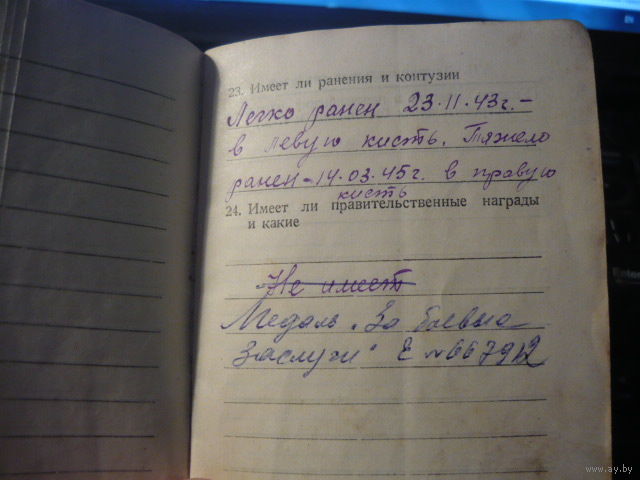 23. Имеет ли ранения и контузии
Легко ранен 23.11.43г. –
в левую кисть. Тяжело
ранен – 14.03.45г. в правую
кисть
24. Имеет ли правительственные награды
и какие
Не имеет
Медаль "За боевые
заслуги" Е № 667912
www.ay.by